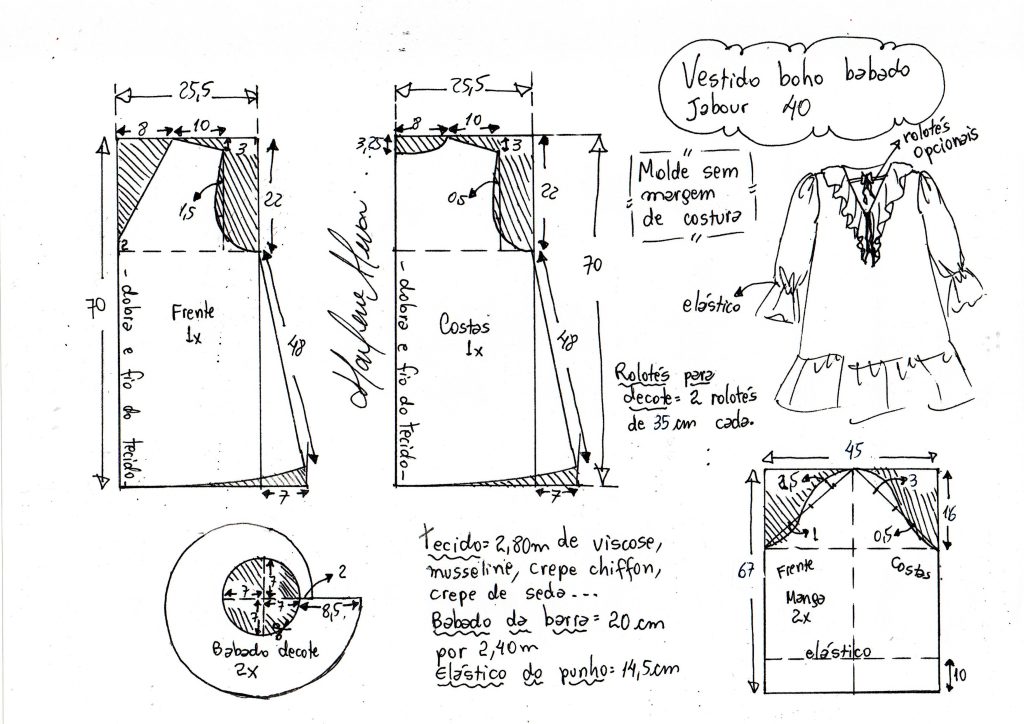 Vestido boho babado
Jabour 40
rolotés
opcionais
Molde sem
margem
de costura
elástico
Rolotés para
decote = 2 rolotés
de 35 cm cada.
25,5
8
10
3
1,5
22
2
70
Frente
1x
- dobra e fio do tecido -
48
7
25,5
8
10
3,25
3
0,5
22
70
Costas
1x
- dobra e fio do tecido -
48
7
7
7
7
7
2
8,5
Babado decote
2x
tecido = 2,80m de viscose,
musseline, crepe chiffon,
crepe de seda ...
Babado da barra = 20 cm
por 2,40m
Elástico do punho = 14,5cm
45
3
1
0,5
16
67
Frente
Costas
Manga
2x
elástico
10